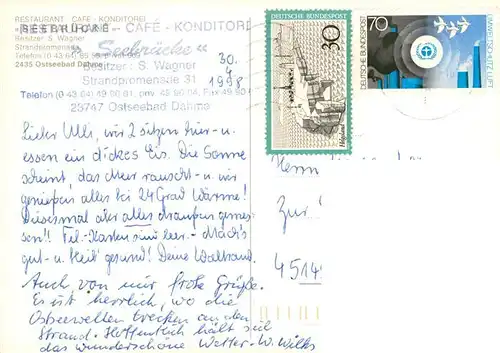 RESTAURANT CAFE - KONDITOREI
RESTAURANT - CAFÉ - KONDITOREI
SEEBRÜCKE
„Seebrücke“
Besitzer S. Wagner
Besitzer: S. Wagner
Strandpromenade
Strandpromenade 31
2435 Ostseebad Dahme
23747 Ostseebad Dahme
30.
1998
DEUTSCHE BUNDESPOST
30
70
DEUTSCHE BUNDESPOST
UMWELTSCHUTZ LUFT
Lieber Ulli, wir 2 sitzen hier u.
essen ein dickes Eis. Die Sonne
scheint, das Meer rauscht u. wir
genießen alles bei 24 Grad Wärme!
Diesesmal aber alles draußen gemes-
sen!! Tel.-Karten sind leer - Mach's
gut u. bleib gesund! Deine Waltraud.
Auch von mir frohe Grüße.
Es ist herrlich, wo die
Ostseewellen trecken an den
Strand. Hoffentlich hält sich
das wunderschöne Wetter - W. Wilks
Herrn
Zur
4514